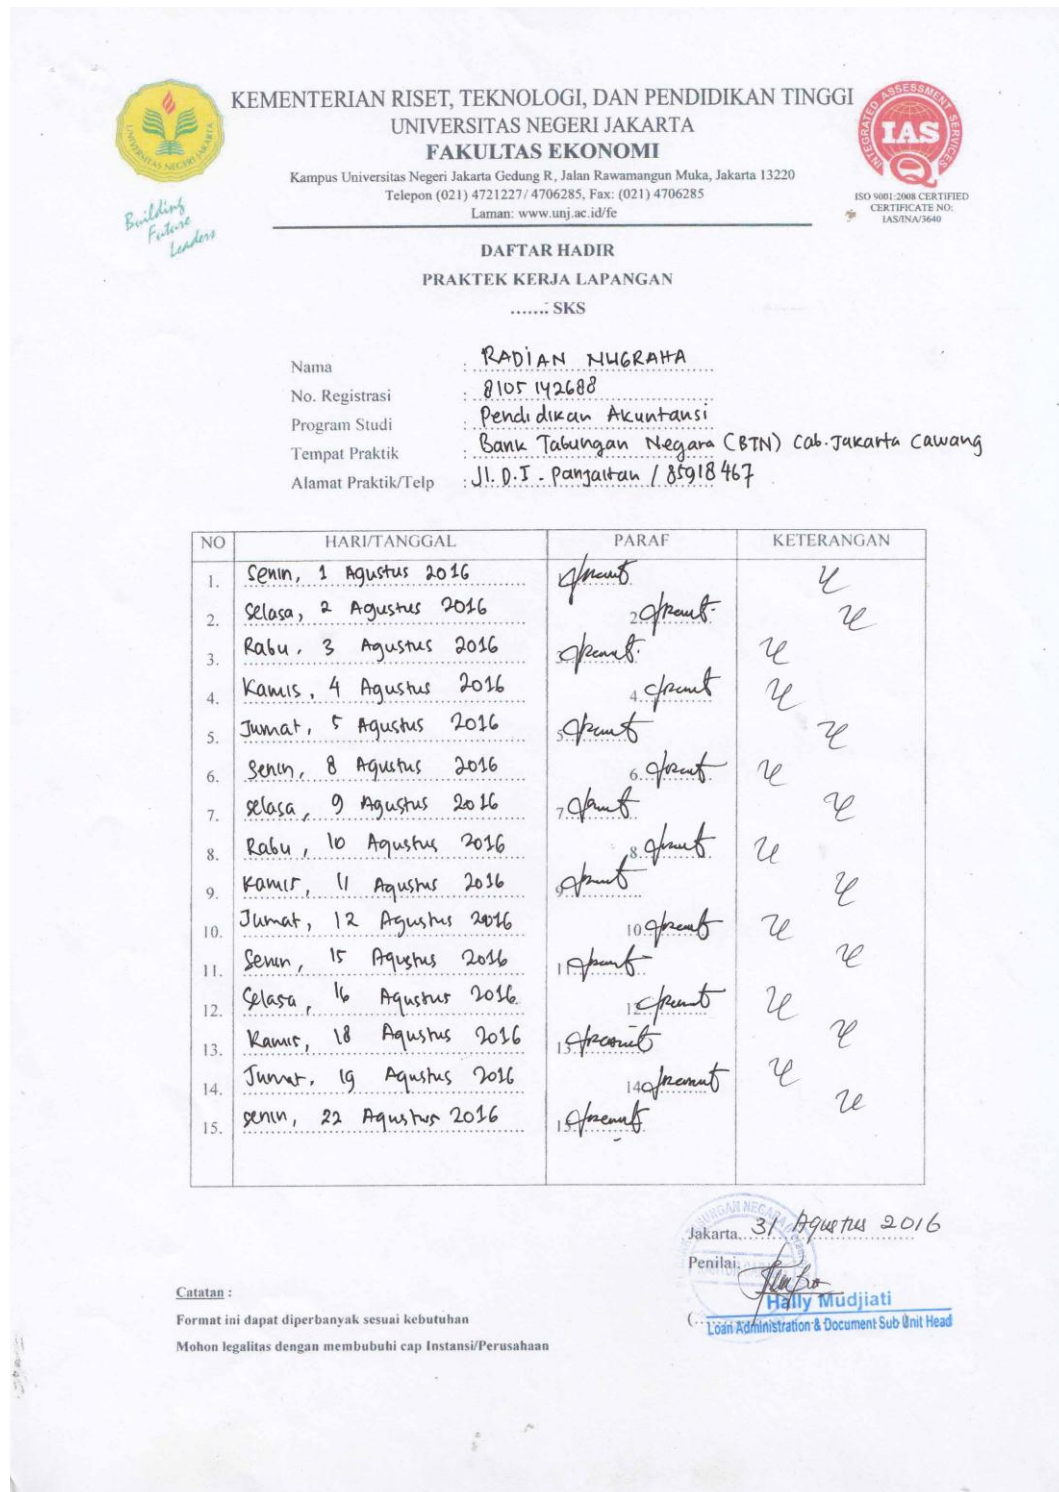 KEMENTERIAN RISET, TEKNOLOGI, DAN PENDIDIKAN TINGGI
UNIVERSITAS NEGERI JAKARTA
FAKULTAS EKONOMI
Kampus Universitas Negeri Jakarta Gedung R, Jalan Rawamangun Muka, Jakarta 13220
Telepon (021) 4721227/ 4706285, Fax: (021) 4706285
Laman: www.unj.ac.id/fe
UNIVERSITAS NEGERI JAKARTA
Building
Future
Leaders
INTEGRATED ASSESSMENT SERVICES
IAS
ISO 9001:2008 CERTIFIED
CERTIFICATE NO:
IAS/INA/3640
DAFTAR HADIR
PRAKTEK KERJA LAPANGAN
....... SKS
Nama : RADIAN NUGRAHA
No. Registrasi : 8105142688
Program Studi : Pendidikan Akuntansi
Tempat Praktik : Bank Tabungan Negara (BTN) Cab. Jakarta Cawang
Alamat Praktik/Telp : Jl. D.I - Panjaitan / 85918467
NO HARI/TANGGAL PARAF KETERANGAN
1. Senin, 1 Agustus 2016
2. Selasa, 2 Agustus 2016 2
3. Rabu, 3 Agustus 2016 3
4. Kamis, 4 Agustus 2016 4.
5. Jumat, 5 Agustus 2016 5
6. Senin, 8 Agustus 2016 6.
7. Selasa, 9 Agustus 2016 7
8. Rabu, 10 Agustus 2016 8.
9. Kamis, 11 Agustus 2016 9
10. Jumat, 12 Agustus 2016 10
11. Senin, 15 Agustus 2016 11
12. Selasa, 16 Agustus 2016 12
13. Kamis, 18 Agustus 2016 13
14. Jumat, 19 Agustus 2016 14
15. Senin, 22 Agustus 2016 15
Jakarta, 31 Agustus 2016
Penilai,
Hally Mudjiati
Loan Administration & Document Sub Unit Head
Catatan :
Format ini dapat diperbanyak sesuai kebutuhan
Mohon legalitas dengan membubuhi cap Instansi/Perusahaan